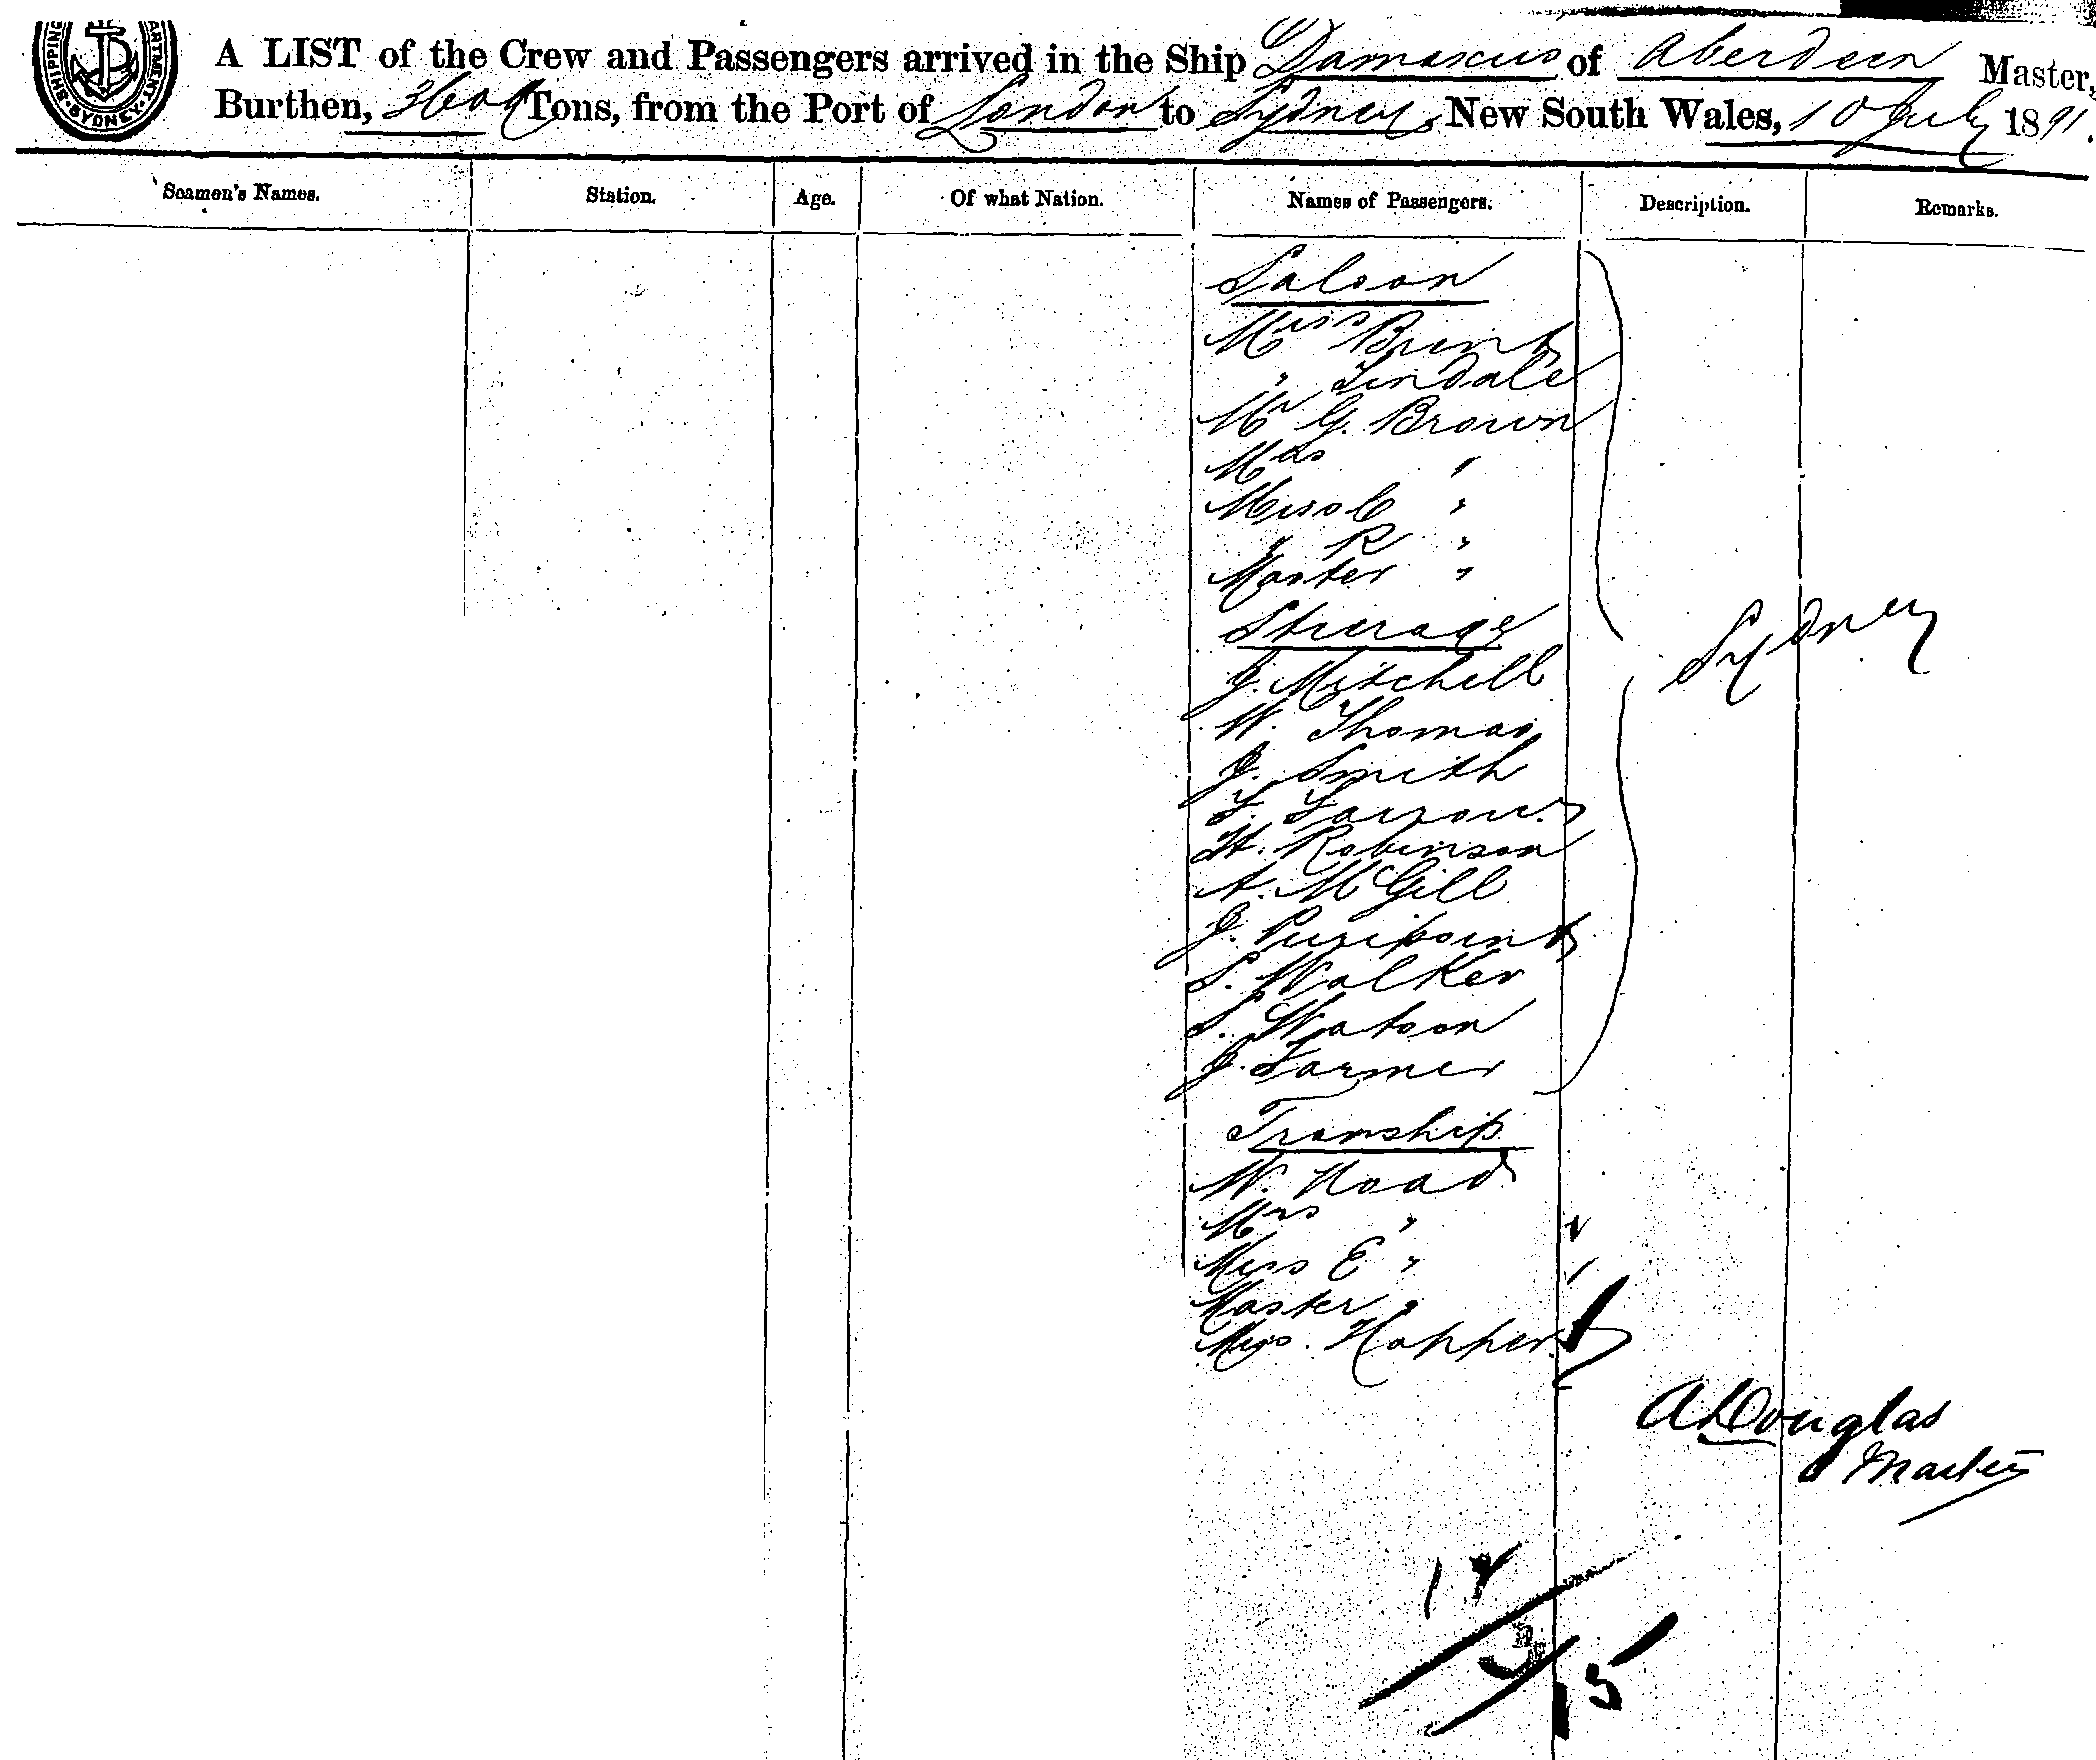 SHIPPING DEPARTMENT SYDNEY
A LIST of the Crew and Passengers arrived in the Ship Damascus of Aberdeen Master,
Burthen, 3609 Tons, from the Port of London to Sydney, New South Wales, 10 July 1891.
Seamen's Names. Station. Age. Of what Nation. Names of Passengers. Description. Remarks.
Saloon
Miss Brent
" Tindale
Mr G. Brown
Mrs "
Miss C "
" R "
Master "
Steerage
Sydney
J. Mitchell
W. Thomas
J. Smith
F. Farrow
H. Robinson
A. McGill
J. Puripoint
S. Walker
S. Watson
J. Farmer
Transhib
W. Hoad
Mrs "
Miss E "
Master "
Miss. Hopper
A Douglas
Master
15